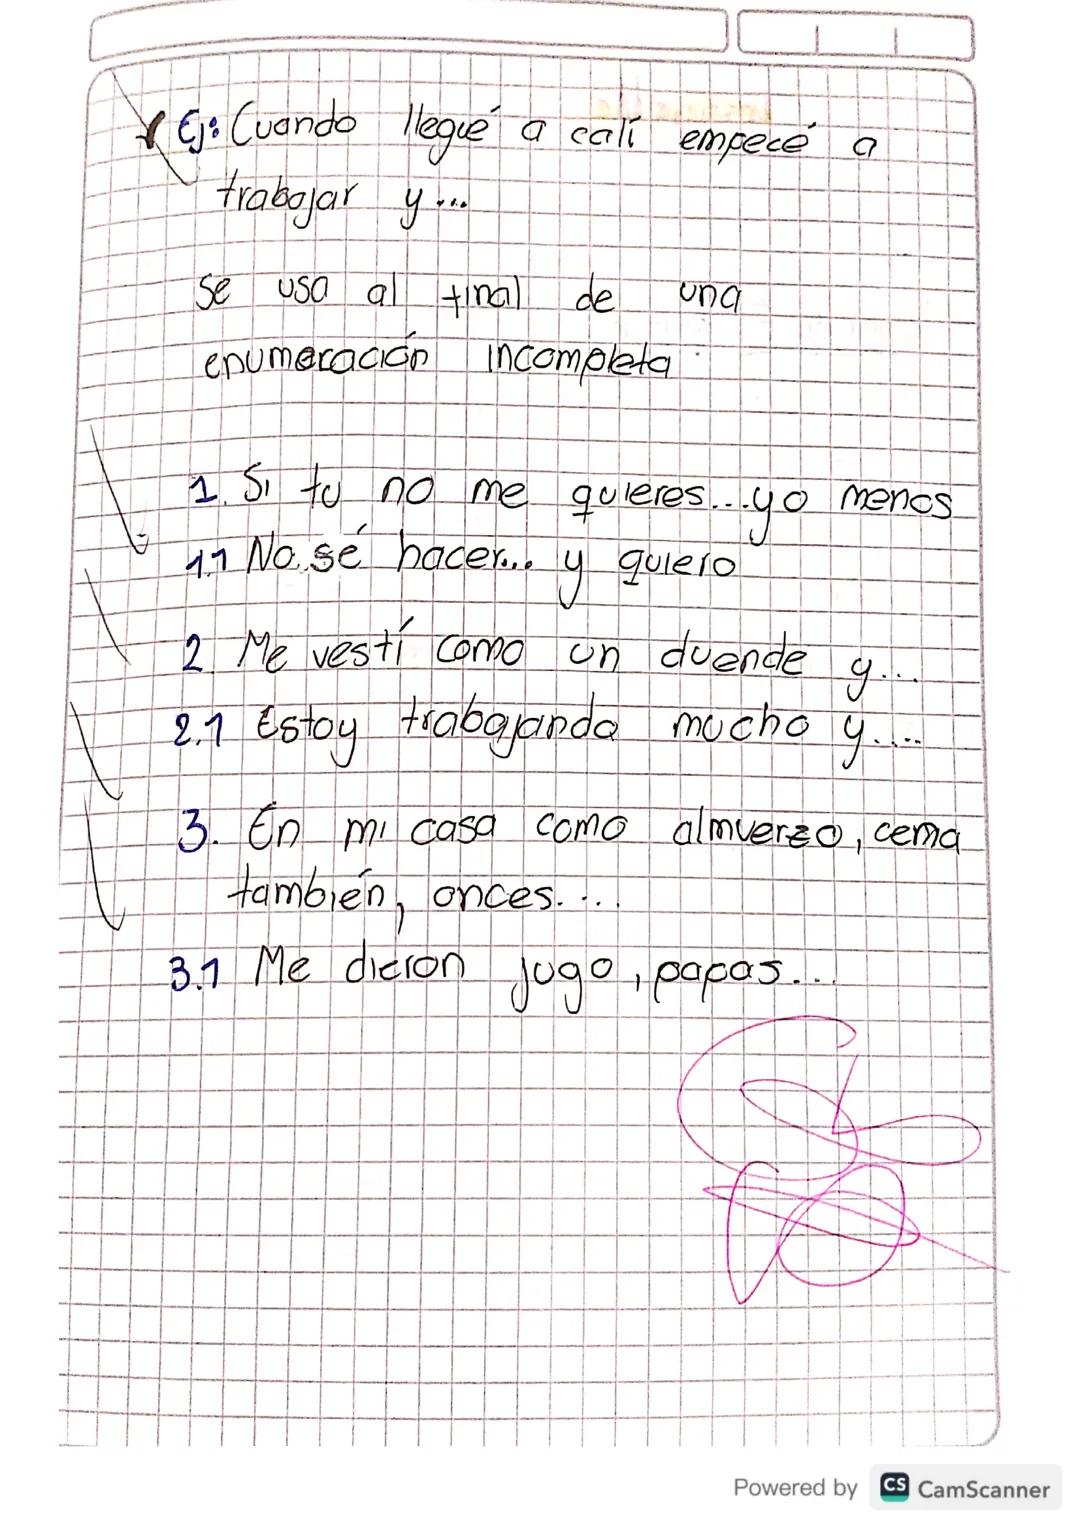 Ej: Cuando llegué a cali empecé a
trabajar y...
se usa al final de una
enumeración incompleta
1. Si tu no me quieres...yo menos
1.1 No sé hacer... y quiero
2. Me vestí como un duende y...
2.1 Estoy trabajando mucho y....
3. En mi casa como almuerzo, cema
también, onces....
3.1 Me dieron jugo, papas...
Powered by CS CamScanner